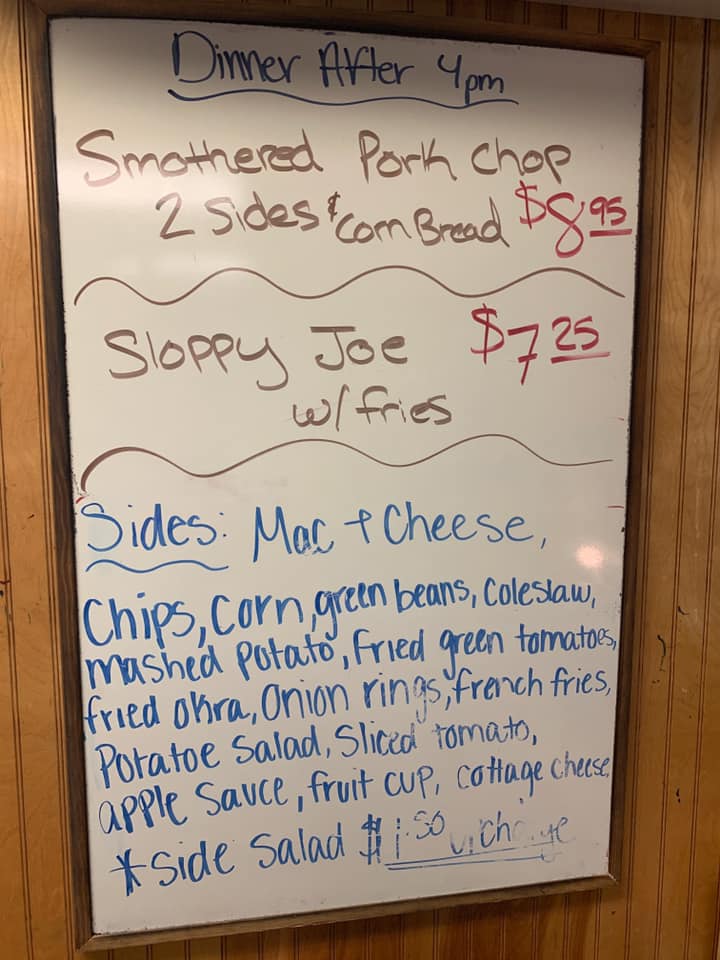 Dinner After 4pm
Smothered Pork Chop
2 Sides & Corn Bread $8.95
Sloppy Joe $7.25
w/ fries
Sides: Mac + Cheese,
Chips, Corn, green beans, Coleslaw,
mashed potato, Fried green tomatoes,
fried okra, Onion rings, french fries,
Potatoe Salad, Sliced tomato,
apple Sauce, fruit cup, cottage cheese
* Side Salad $1.50